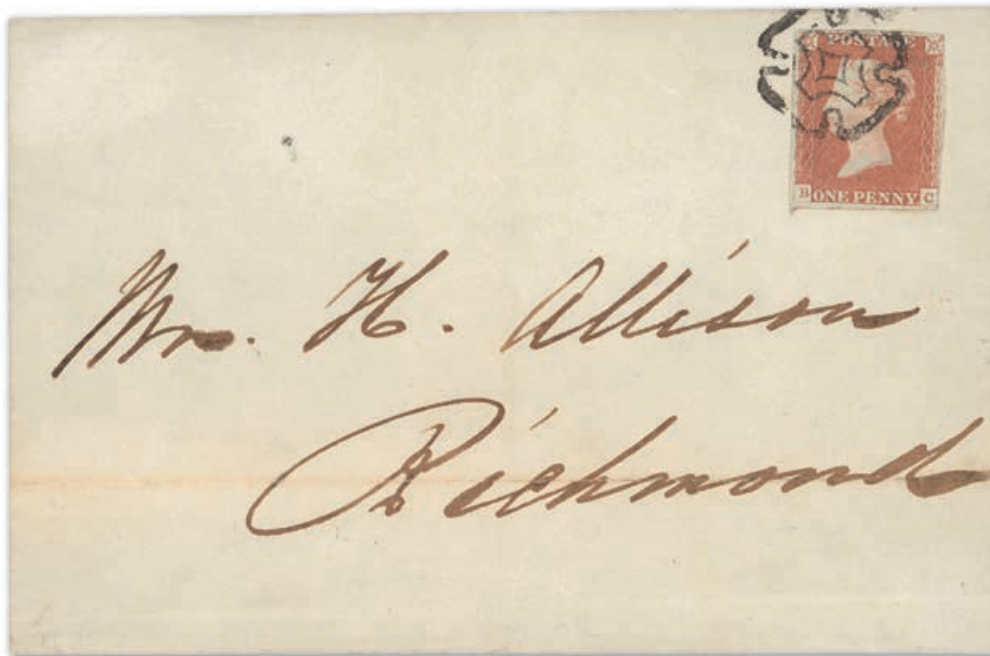 POSTAGE
B ONE PENNY C
Mr. H. Allison
Richmond